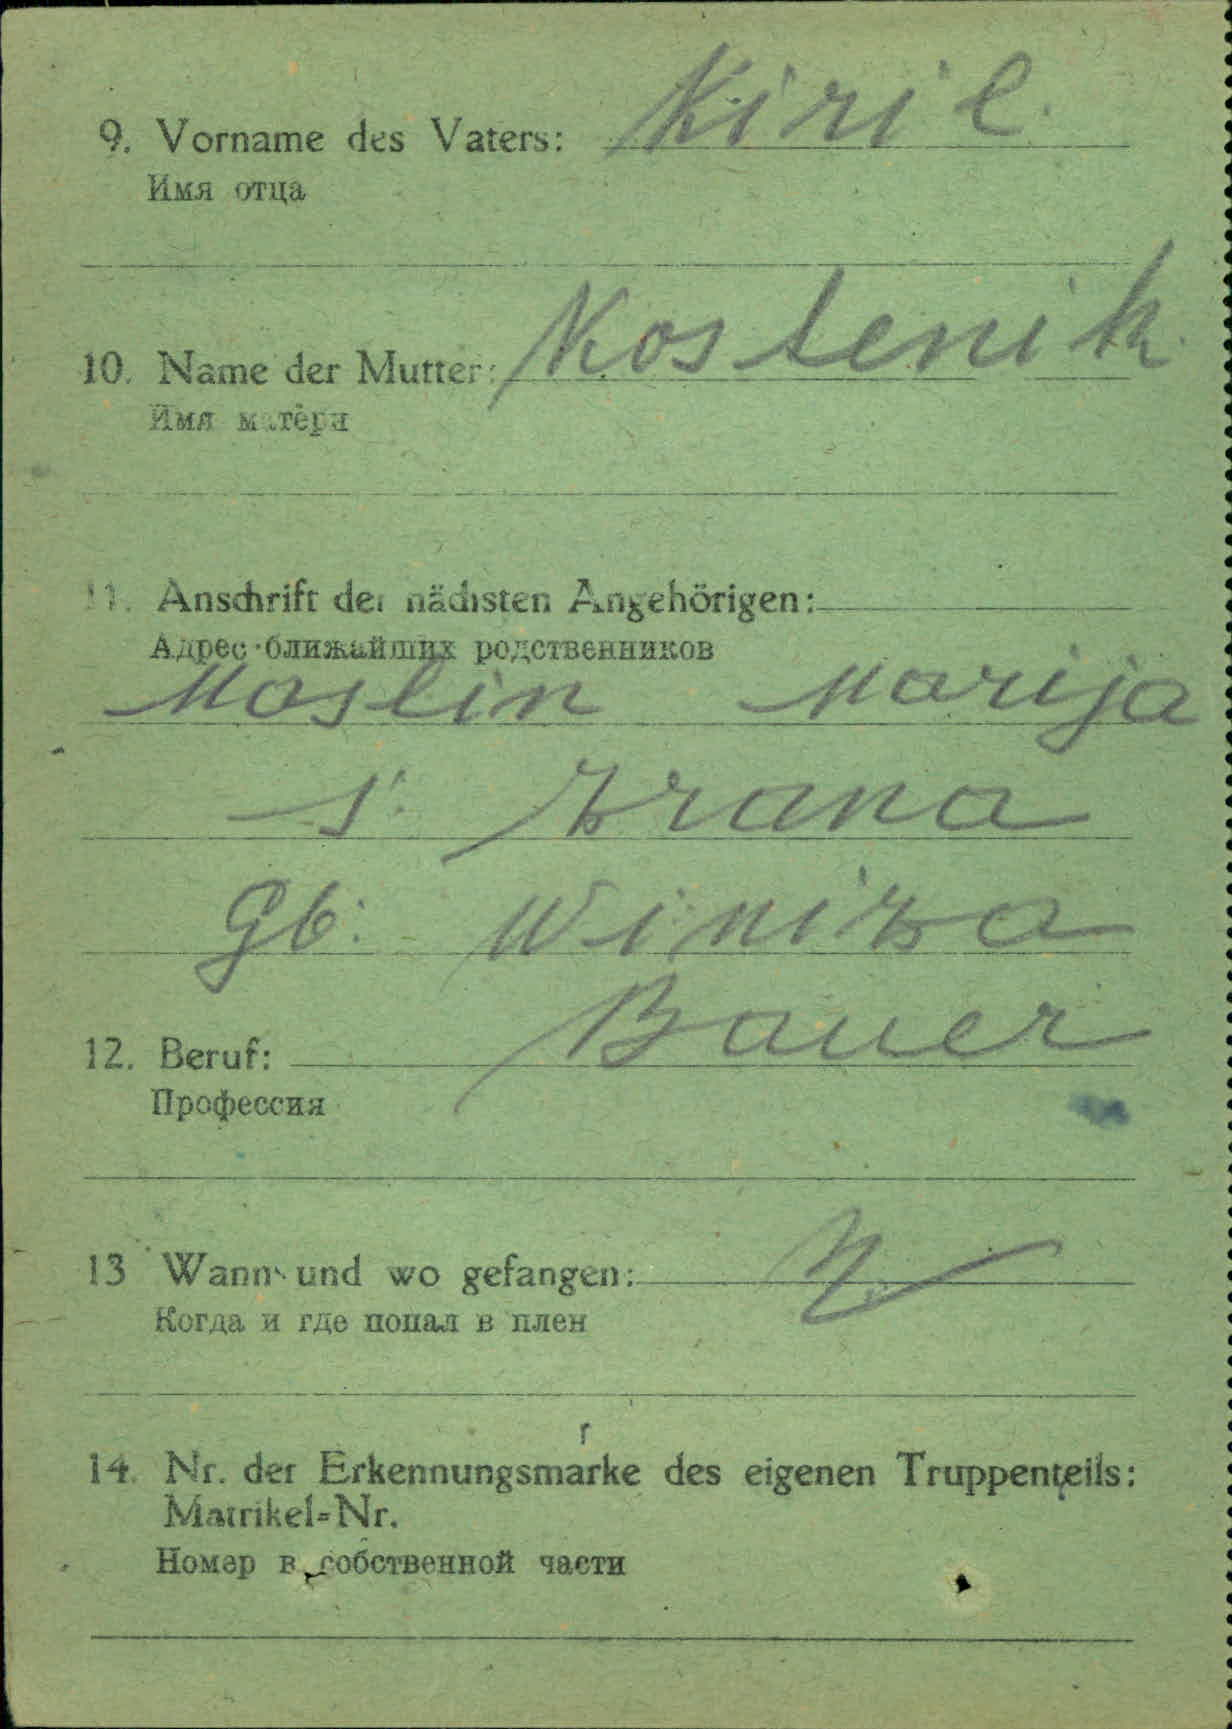 9. Vorname des Vaters: Kiril
Имя отца
10. Name der Mutter: Kostenik
Имя матери
11. Anschrift der nächsten Angehörigen:
Адрес ближайших родственников
Maslin Marija
s.
Gb: Winiza
12. Beruf: Bauer
Профессия
13 Wann und wo gefangen:
Когда и где попал в плен
14. Nr. der Erkennungsmarke des eigenen Truppenteils:
Matrikel=Nr.
Номер в собственной части